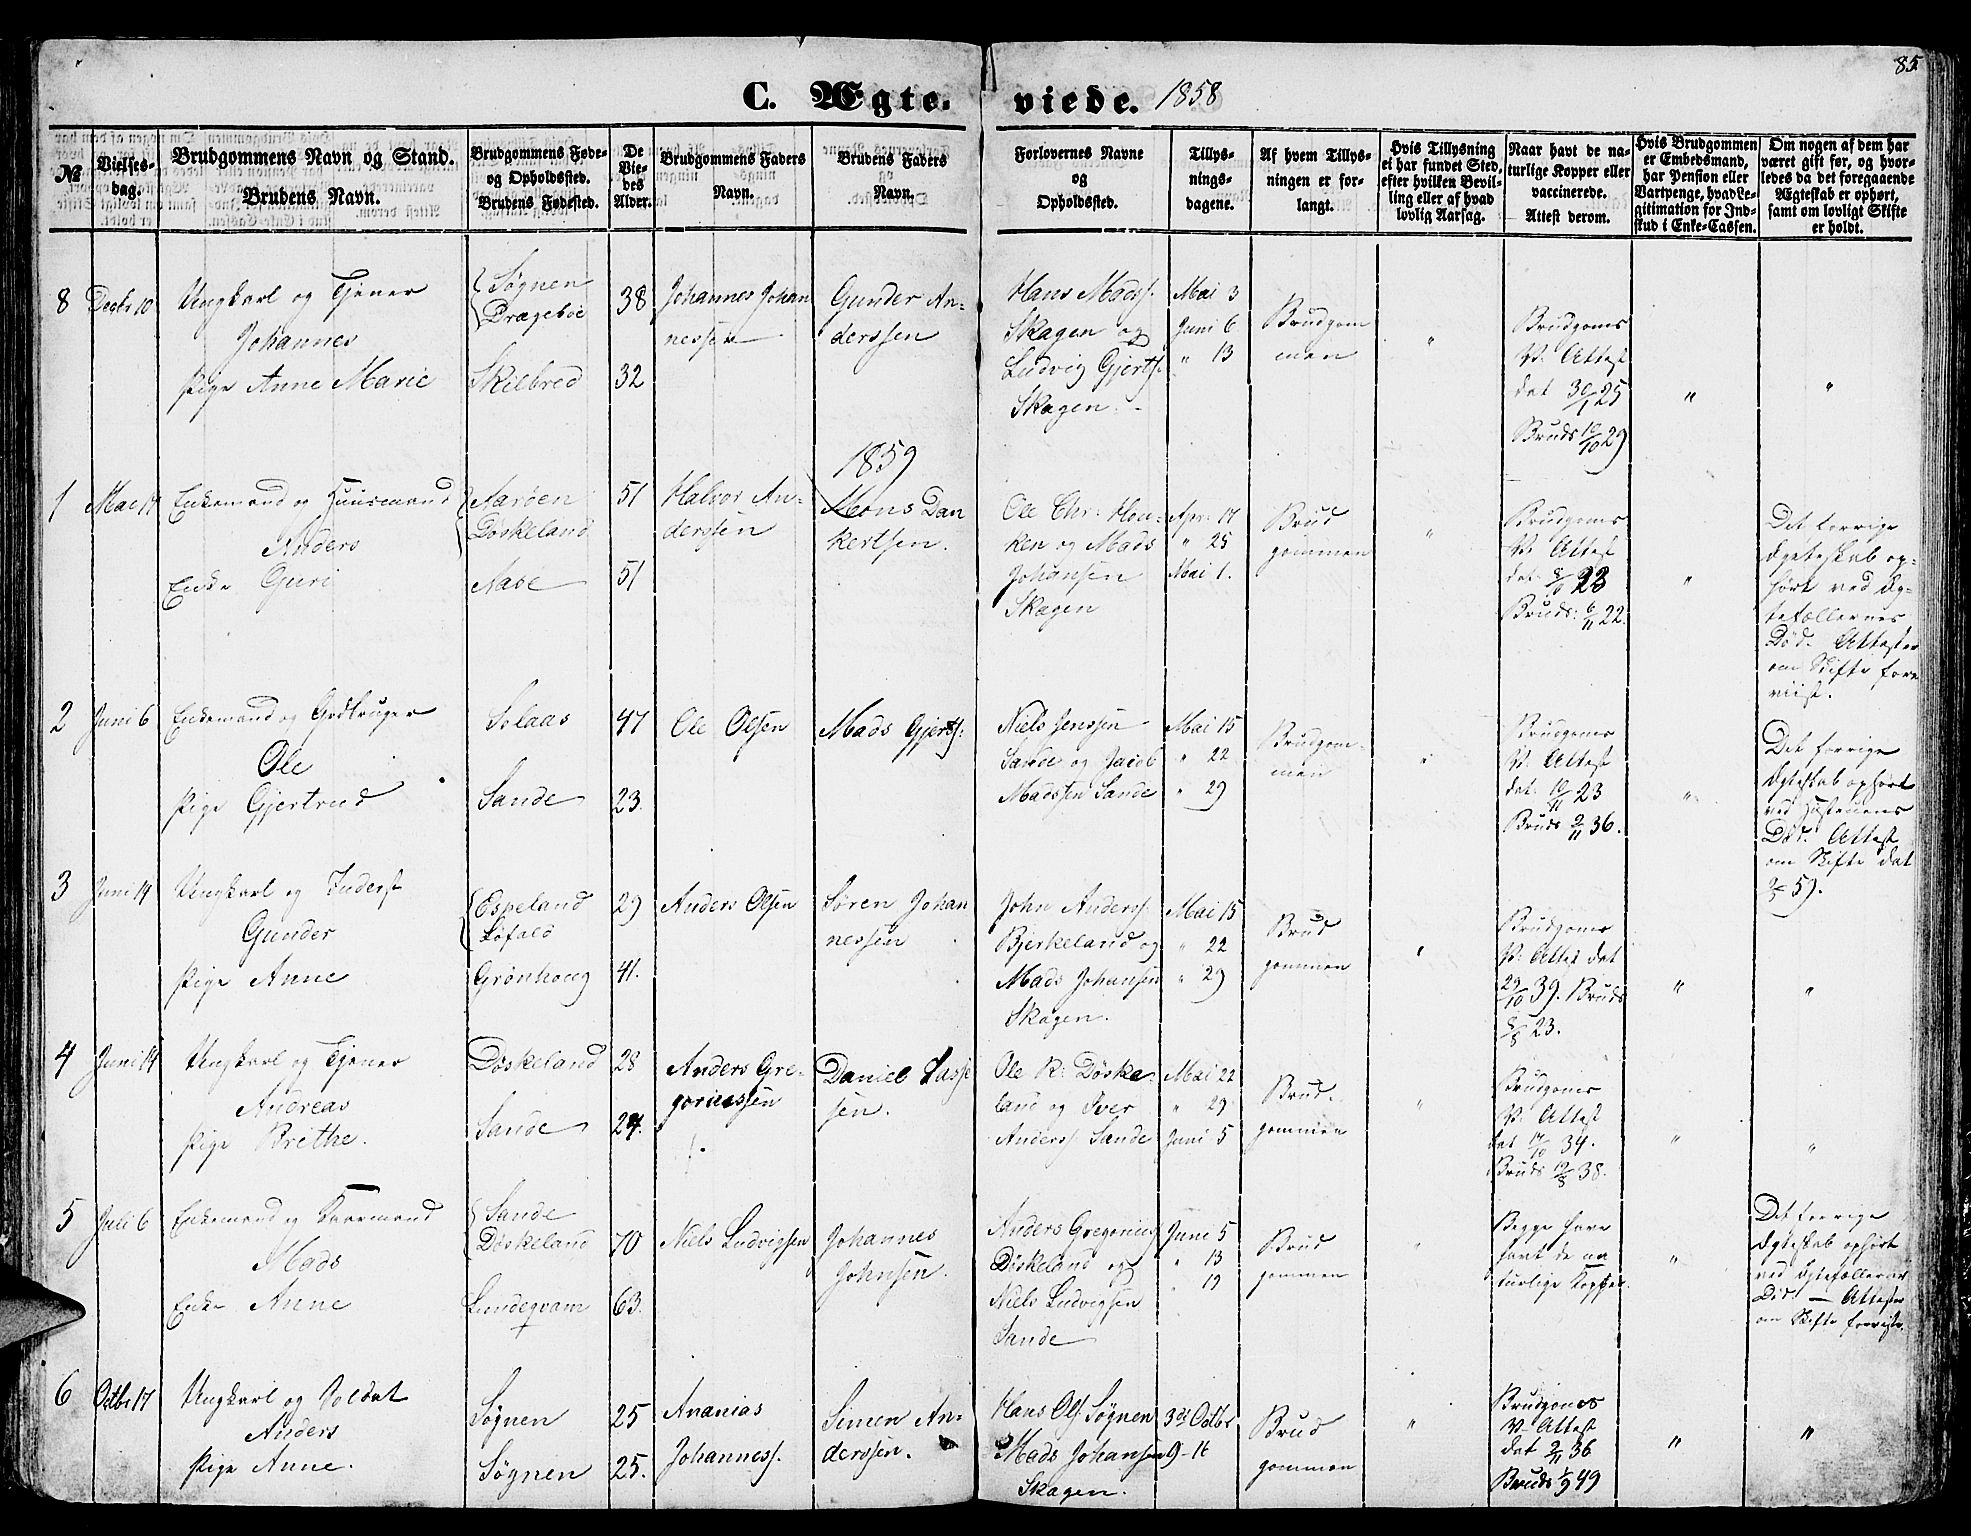 85
C. Ægte-
viede. 1858
№
Vielses-
dag.
Brudgommens Navn og Stand.
Brudens Navn.
Brudgommens Føde-
og Opholdssted.
Brudens Fødested.
De
Vie-
des
Alder.
Brudgommens Faders
Navn.
Brudens Faders
Navn.
Forlovernes Navne
og
Opholdssted.
Tillys-
nings-
dagene.
Af hvem Tillys-
ningen er for-
langt.
Hvis Tillysning
ei har fundet Sted,
efter hvilken Bevil-
ling eller af hvad
lovlig Aarsag.
Naar havt de na-
turlige Kopper eller
vaccinerede.
Attest derom.
Hvis Brudgommen
er Embedsmand,
har Pension eller
Vartpenge, hvad Le-
gitimation for Ind-
skud i Enke-Cassen.
Om nogen af dem har
været gift før, og hvor-
ledes da det foregaaende
Ægteskab er ophørt,
samt om lovligt Skifte
er holdt.
8 Decbr 10
Ungkarl og Tjener
Johannes
Pige Anne Marie
Søgnen
Dragebøe
Skilbred
38
32
Johannes Johan
nessen
Gunder An-
derssen
Hans Madss.
Skagen og
Ludvig Gjerts.
Skagen.
Mai 3
Juni 6
" 13
Brudgom
men
"
Brudgoms
V: Attest
dat 30/1 25
Bruds 10/10 29
"
"
1859
1 Mai 17
Enkemand og Huusmand
Anders
Enke Guri
Aarøen
Døskeland
Aase
51
51
Halvor An-
derssen
Mons Dan
kertsen.
Ole Chr: Hou-
ken og Mads
Johansen
Skagen
Apr: 17
" 25
Mai 1.
Brud
gommen
"
Brudgoms
V: Attest
dat: 23
Bruds: 6/11 22.
"
Det forrige
Ægteskab op-
hørt ved Æg-
tefællernes
Død. Attester
om Skifte fore
viist.
2 Juni 6
Enkemand og Gdbruger
Ole
Pige Gjertrud
Solaas
Sande
47
23.
Ole Olsen
Mads Gjerts:
Niels Jenssen
Sande og Jacob
Madssen Sande
Mai 15
" 22
" 29
Brudgom-
men
"
Brudgoms
V: Attest
dat: 10/11 23
Bruds 2/11 36.
"
Det forrige
Ægteskab ophørt
ved Hustruens
Død. Attest
om Skifte dat
59.
3 Juni 14
Ungkarl og Inderst
Gunder
Pige Anne
Espeland
Løfald
Grønhoug
29
41.
Anders Olsen
Søren Johan
nessen
John Anderss.
Bjerkeland og
Mads Johansen
Skagen.
Mai 15
" 22
" 29
Brud
gommen
"
Brudgoms
V: Attest dat
29/10 39. Bruds
23.
"
"
4 Juni 14
Ungkarl og Tjener
Andreas
Pige Brithe.
Døskeland
Sande
28
24.
Anders Gre-
goriussen
Daniel Lasse
sen.
Ole R: Døske-
land og Iver
Anderss. Sande
Mai 22
" 29
Juni 5
Brud-
gommen
"
Brudgoms
V: Attest
dat 17/10 34.
Bruds 38.
"
"
5 Juli 6
Enkemand og Kaarmand
Mads
Enke Anne
Sande
Døskeland
Lundeqvam
70
63.
Niels Ludvigsen
Johannes
Johnsen.
Anders Gregorius
Døskeland og
Niels Ludvigsen
Sande
Juni 5
" 13
" 19
Brud
gommen
"
Begge have
havt de na
turlige Kopper.
"
Det forrige
Ægteskab ophørt
ved Ægtefællernes
Død. — Attester
om Skifte foreviste.
6 Octbr 17
Ungkarl og Soldat
Anders
Pige Anne.
Søgnen
Søgnen
25
25.
Ananias
Johanness.
Simen An-
derssen.
Hans Ols: Søgnen
Mads Johansen
Skagen.
3de Octbr
9-16
Brud
gommen
"
Brudgomes
V. Attest
dat 2/11 36
Bruds 1/9 49
"
"